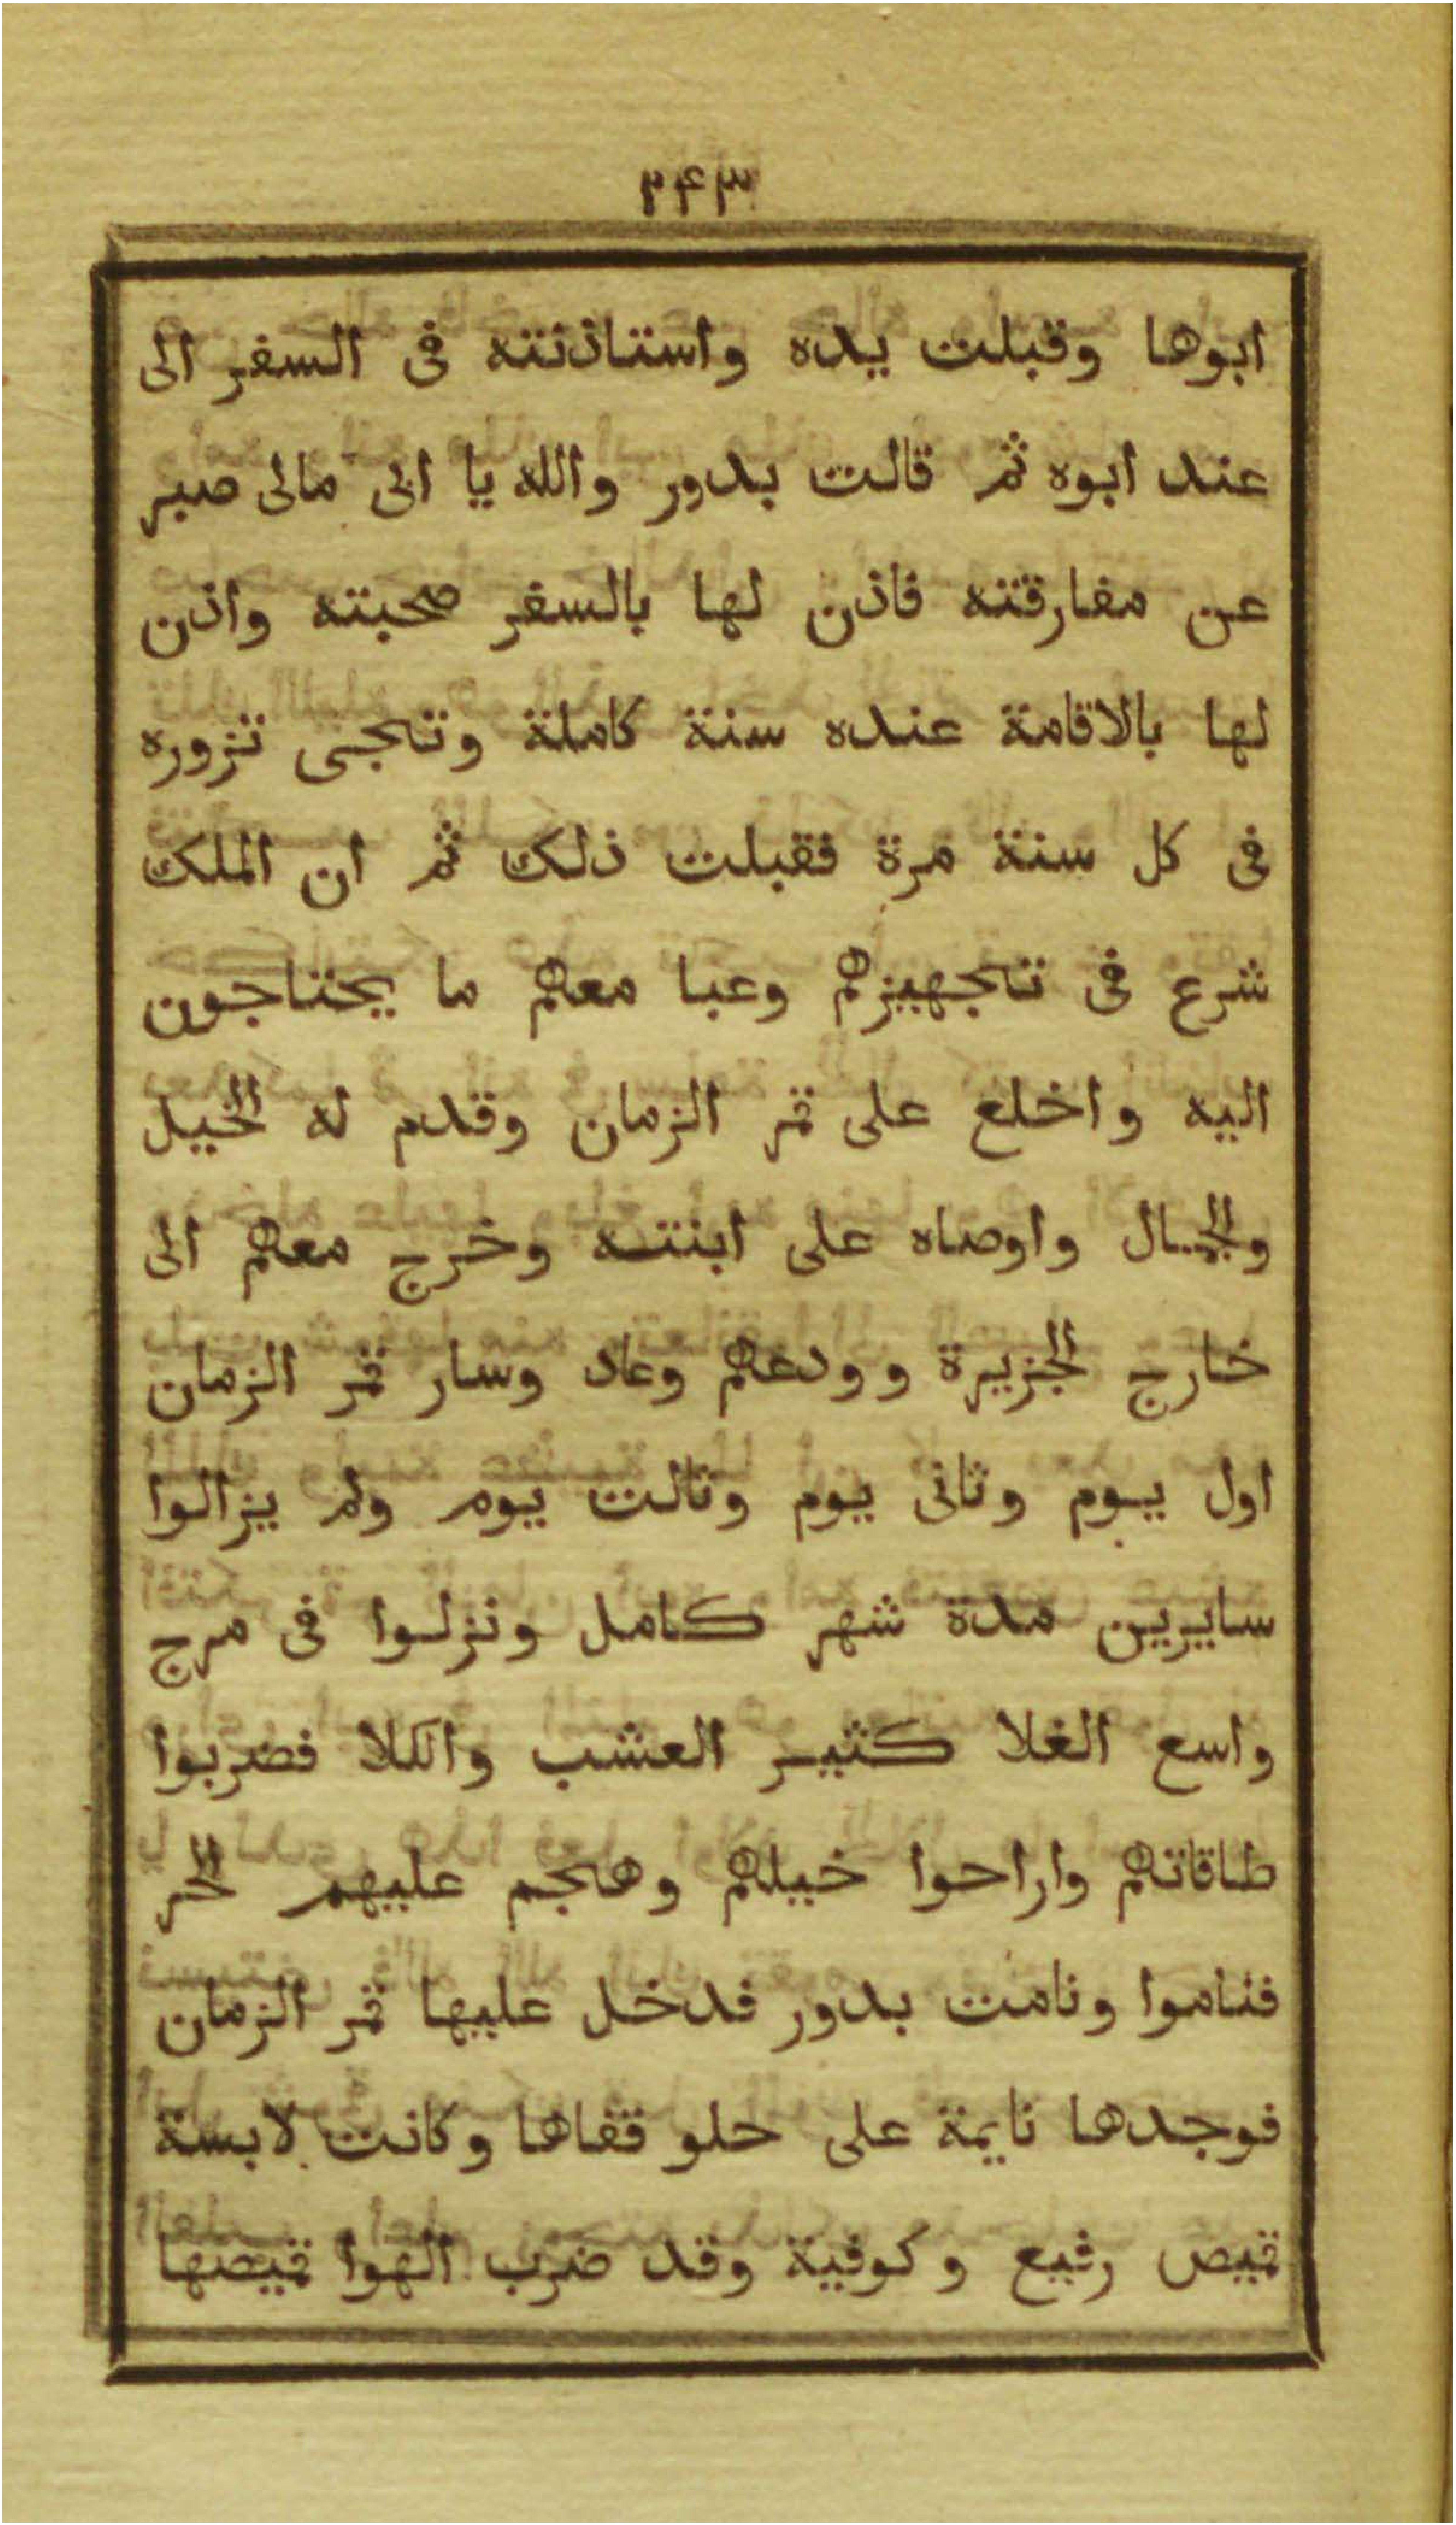 ٢٤٣
ابوها وقبلت يده واستاذنته فى السفر الى
عند ابوه ثم قالت بدور والله يا ابى مالى صبر
عن مفارقته فاذن لها بالسفر صحبته واذن
لها بالاقامة عنده سنة كاملة وتجى تزوره
فى كل سنة مرة فقبلت ذلك ثم ان الملك
شرع فى تجهيزهم وعبا معهم ما يحتاجون
اليه واخلع على قمر الزمان وقدم له الخيل
والجمال واوصاه على ابنته وخرج معهم الى
خارج الجزيرة وودعهم وعاد وسار قمر الزمان
اول يوم وثانى يوم وثالت يوم ولم يزالوا
سايرين مدة شهر كامل ونزلوا فى مرج
واسع الغلا كثير العشب والكلا فضربوا
طاقاتهم واراحوا خيلهم وهجم عليهم الحر
فناموا ونامت بدور فدخل عليها قمر الزمان
فوجدها نايمة على حلو قفاها وكانت لابسة
قميص رفيع وكوفية وقد ضرب الهوا قميصها